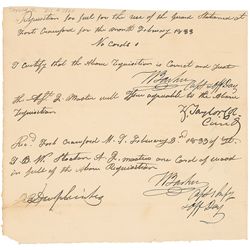 Requisition for fuel for the use of the Guard Stationed at
Fort Crawford for the month February 1833
No Cords
I certify that the Above Requisition is Correct and Just
W Barker
Off Day
The Master will Issue agreeable to the Above
Requisition
Z Taylor
Fort Crawford M. T. February 1833 of
J. B. W. A. J. Master one Cord of wood
in full of the Above Requisition
W Barker
Off Day